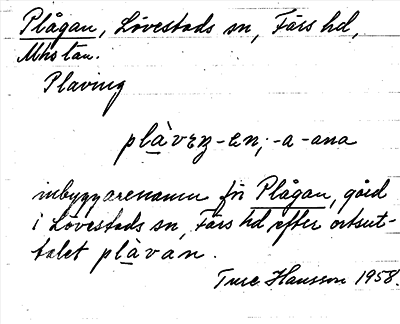 Plågan, Lövestads sn, Färs hd,
Mhs län.
Plaving
plàvɛŋ -en; -a -ana
inbyggarenamn för Plågan, gård
i Lövestads sn, Färs hd efter ortsut-
talet plàvan.
Ture Hansson 1958.